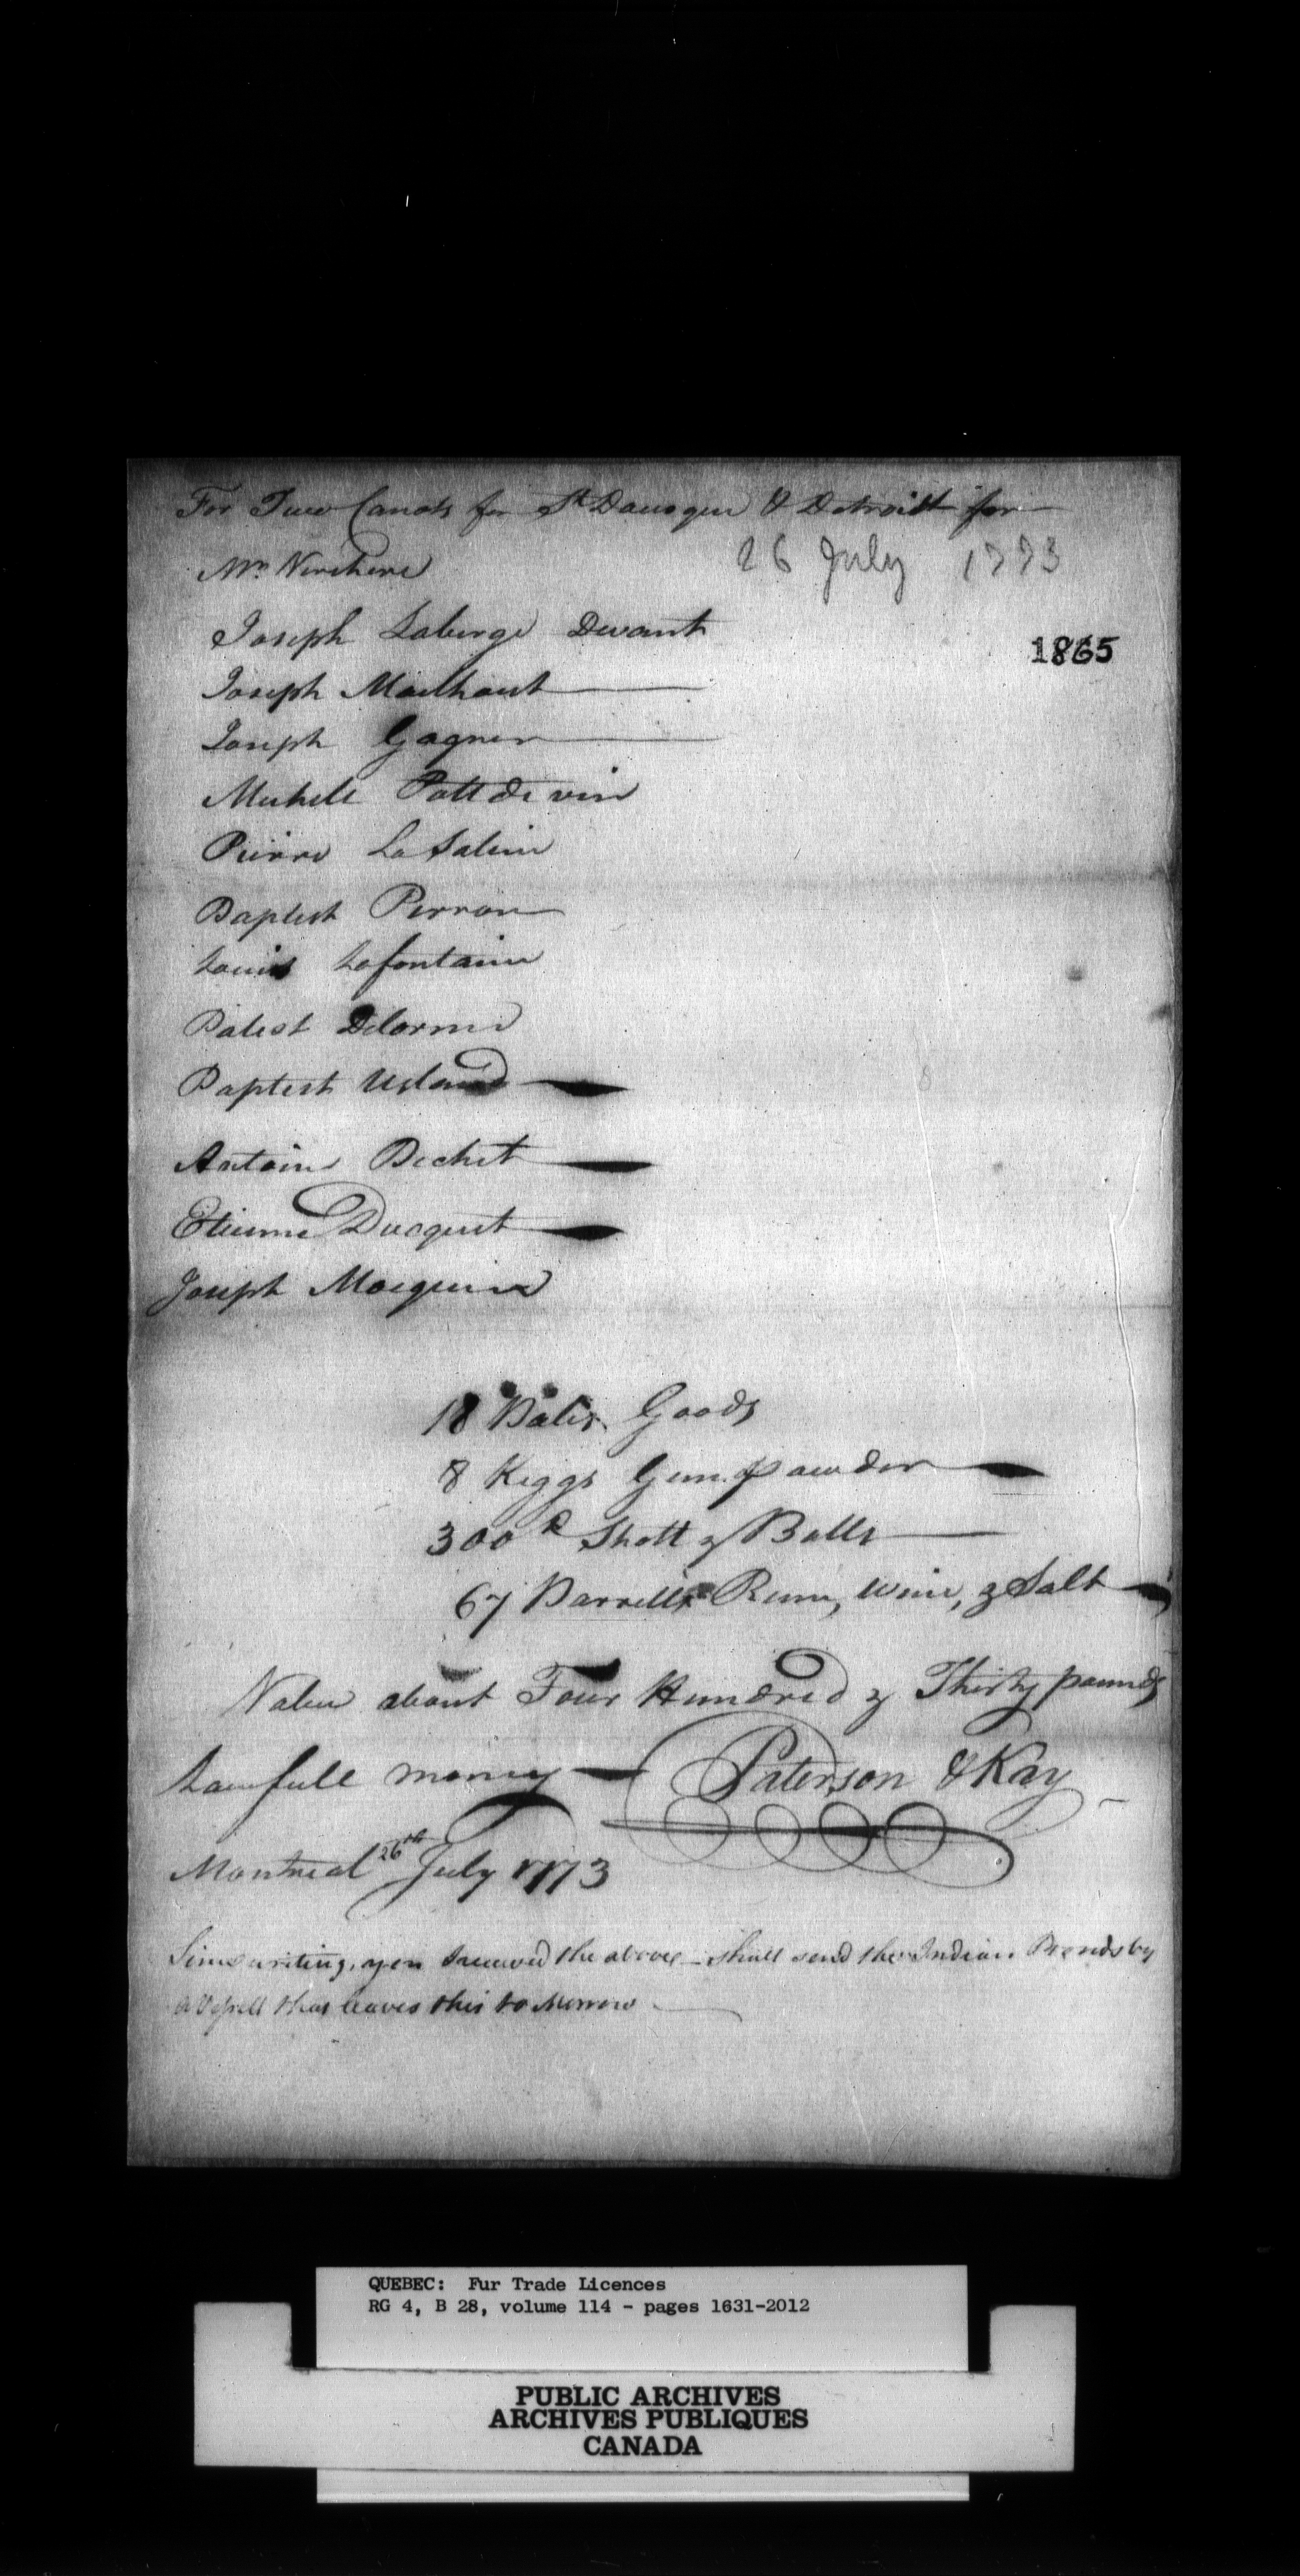 For Two Canots for St Dausque & Detroitt for
Mr Verchere
26 July 1773
Joseph Laberge Devant
1865
Joseph Mailhout
Joseph Gagner
Michele Pattdevin
Pierre La Saline
Baptist Perron
Louis Lafontaine
Batest Delorme
Baptist
Antoine Bechet
Etienne Duquet
Joseph
18 Bales Goods
8 Keggs Gunpowder
300 Shott & Balls
67 Barrells Rum, Wine, & Salt
Value about Four Hundred & Thirty pounds
Lawfull money Paterson & Kay
Montreal 26th July 1773
Since writing, received the above - shall send the Indian Bonds by
a Vessell that leaves this to Morrow
QUEBEC: Fur Trade Licences
RG 4, B 28, volume 114 - pages 1631-2012
PUBLIC ARCHIVES
ARCHIVES PUBLIQUES
CANADA